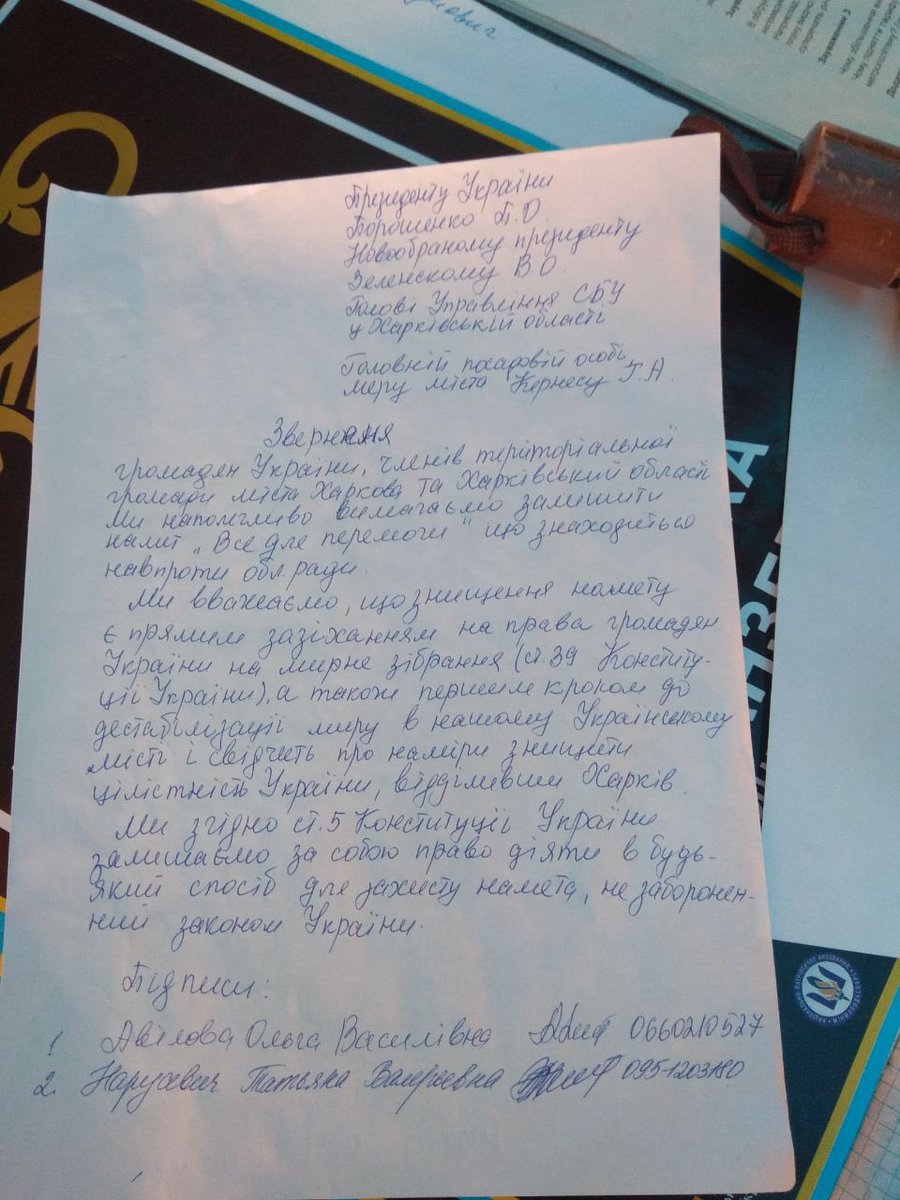 Президенту України
Порошенко П.О
Новообраному президенту
Зеленскому В.О.
Голові Управління СБУ
у Харківській області
Головній посадовій особі
меру міста Кернесу Г.А.
Звернення
громадян України, членів територіальної
громади міста Харкова та Харківський області
Ми наполегливо вимагаємо залишити
намет „Все для перемоги" що знаходиться
навпроти обл.ради.
Ми вважаємо, що знищення намету
є прямим зазіханням на права громадян
України на мирне зібрання (ст.39 Конститу-
ції України), а також першим кроком до
дестабілізації миру в нашому Українському
місті і свідчить про наміри знищити
цілістність України, відділивши Харків.
Ми згідно ст.5 Конституції України
залишаємо за собою право діяти в будь-
який спосіб для захисту намета, не заборонен-
ний законом України.
Підписи:
1. Авілова Ольга Василівна 0660210527
2. Нарусевич Татьяна Валерьевна 095-1203180